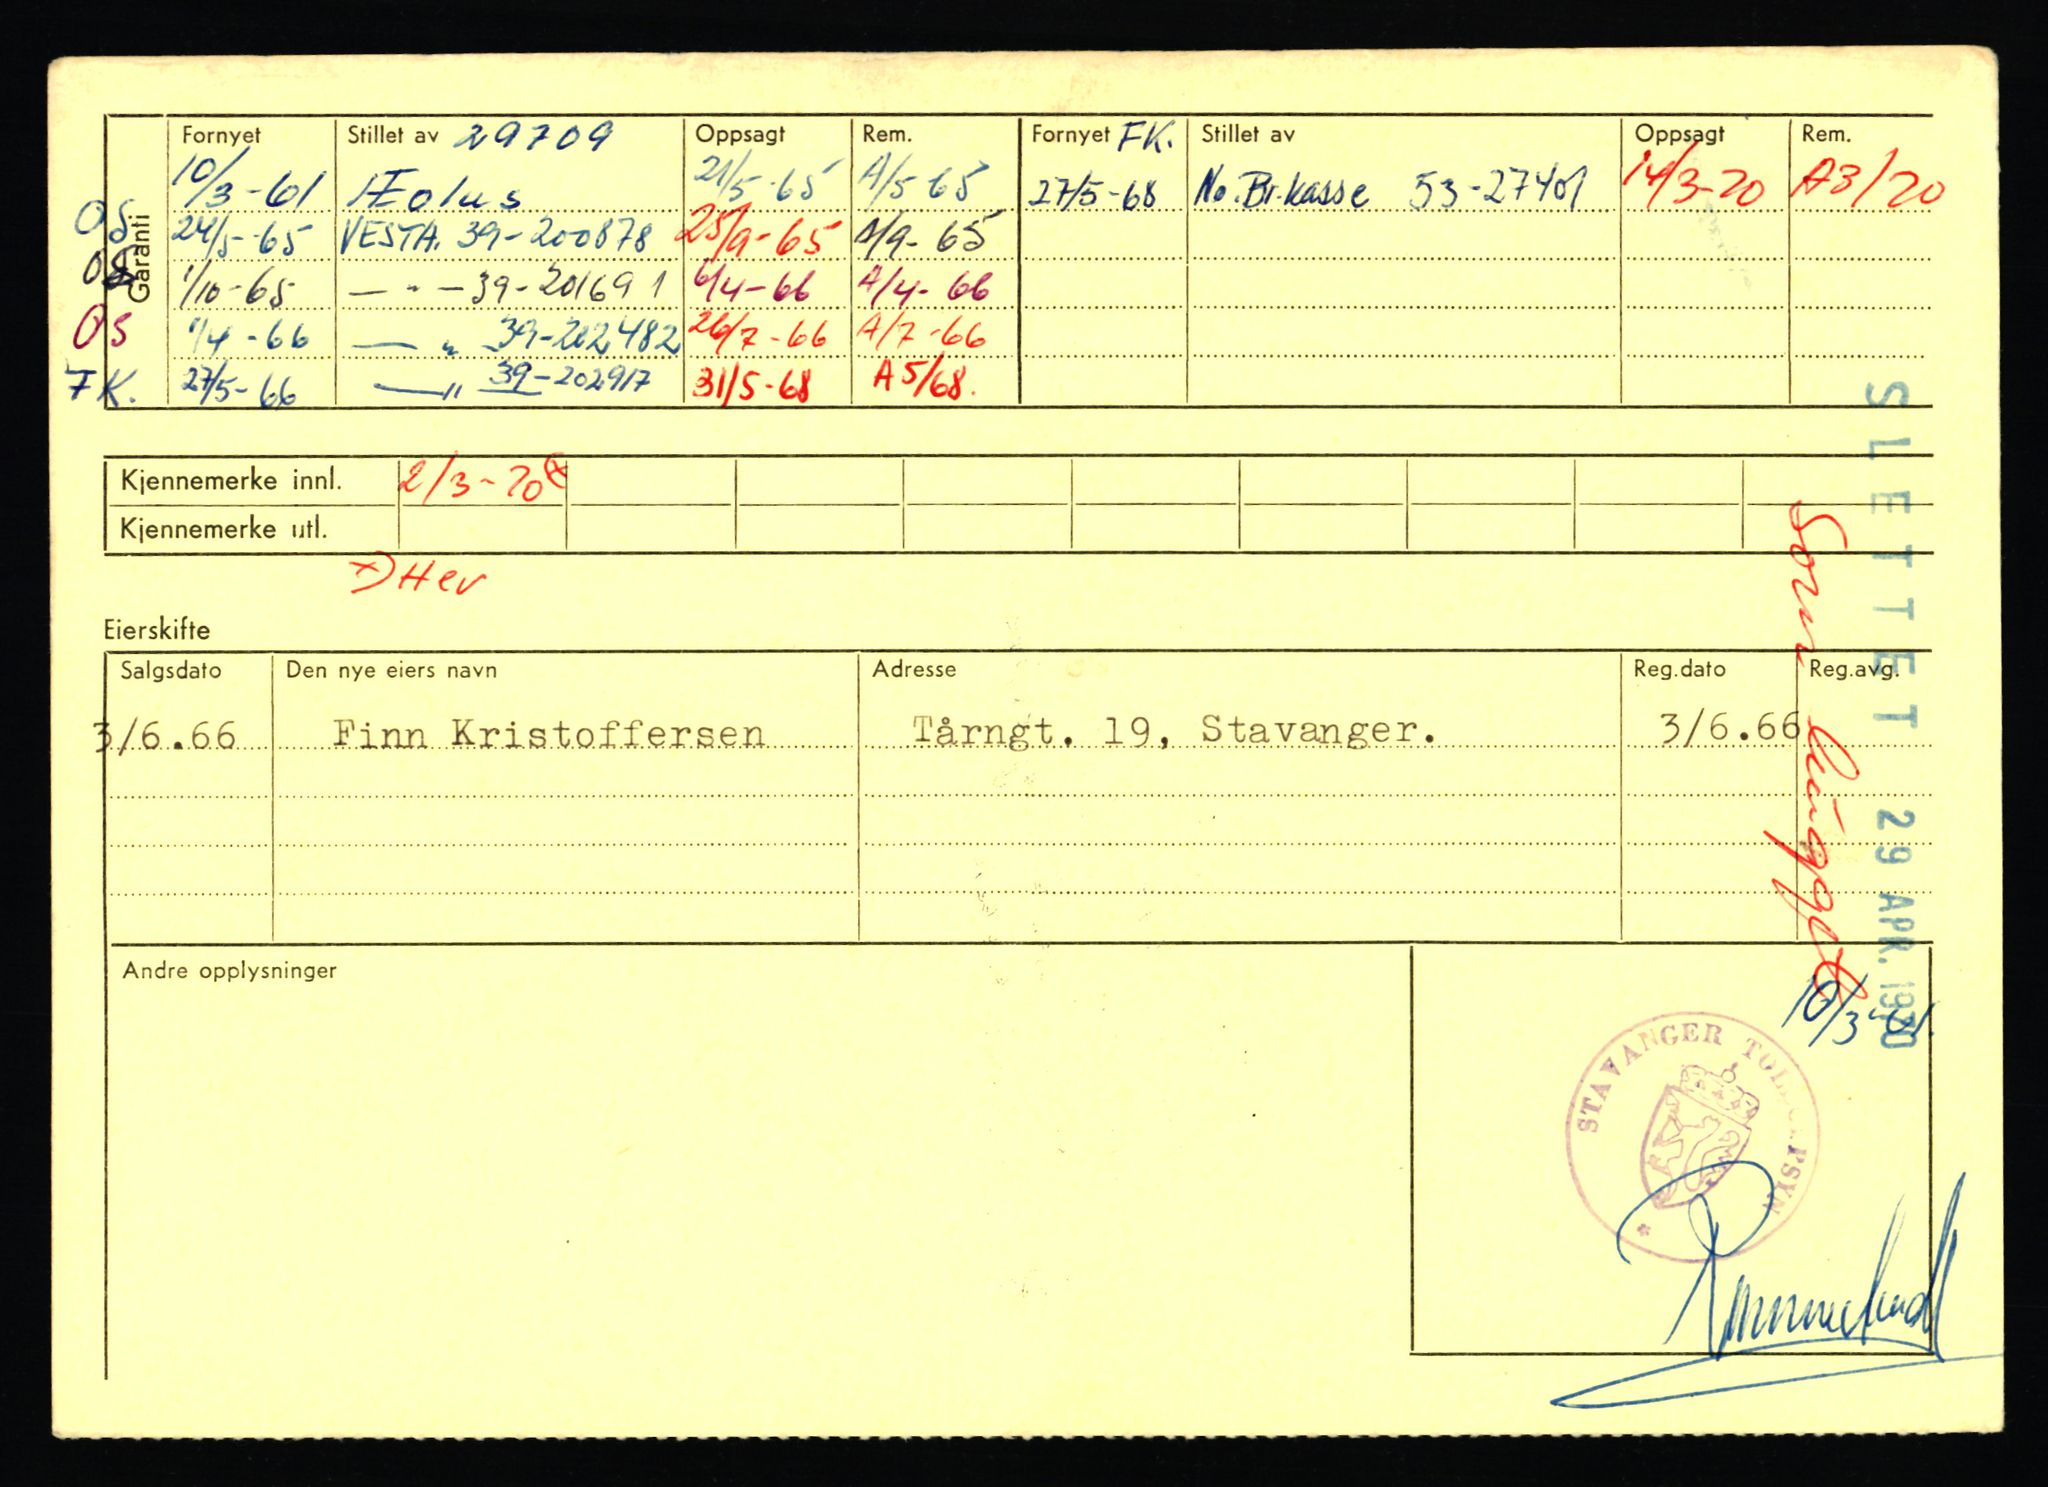 Garanti
Fornyet Stillet av 29709 Oppsagt Rem. Fornyet FK. Stillet av Oppsagt Rem.
10/3-61 Æolus 21/5-65 A/5-65 27/5-68 No.Br.kasse 53-27401 14/3-70 A3/70
OS 24/5-65 VESTA. 39-200878 25/9-65 A/9-65
OS 1/10-65 — " — 39-201691 6/4-66 A/4-66
OS 1/4-66 — " 39-202482 26/7-66 A/7-66
FK. 27/5-66 — " 39-202917 31/5-68 A5/68.
Kjennemerke innl. 2/3-70 x)
Kjennemerke utl.
x) Her
Eierskifte
Salgsdato Den nye eiers navn Adresse Reg.dato Reg.avg.
3/6.66 Finn Kristoffersen Tårngt. 19, Stavanger. 3/6.66
Andre opplysninger
SLETTET 29 APR. 1970
Som
10/3-61.
STAVANGER